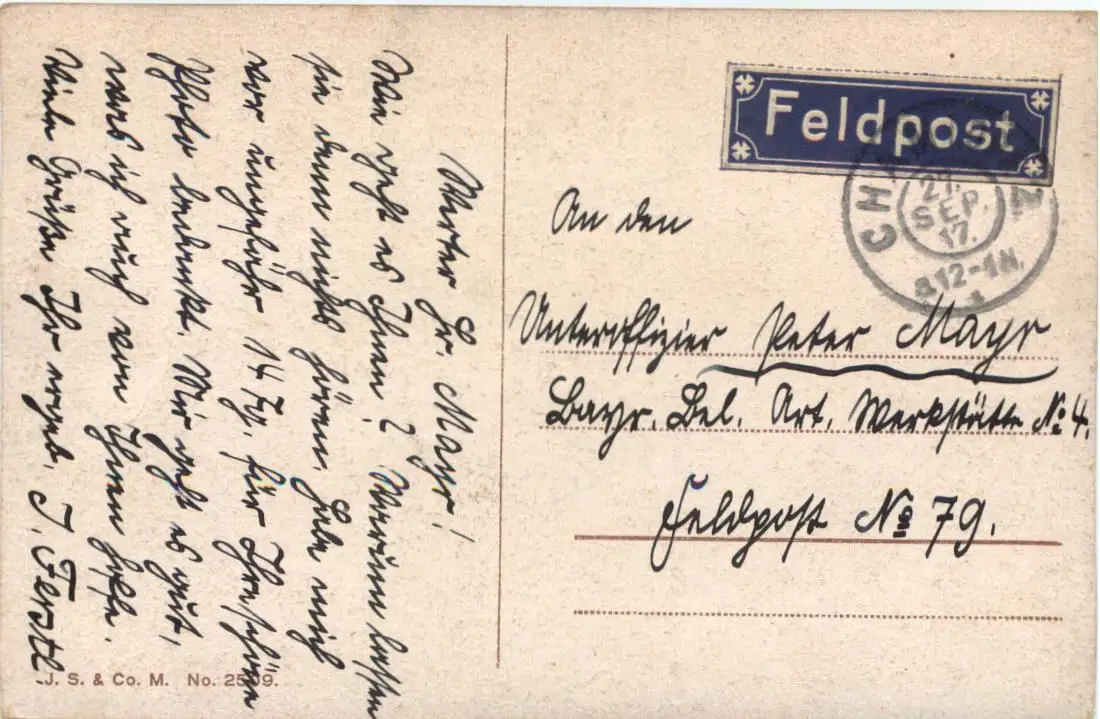 Werter Hr. Mayr!
Wie geht es Ihnen? Warum lassen
sie denn nichts hören. Habe mich
vor ungefähr 14 Tg. für Ihre schöne
Photo bedankt. Mir geht es gut,
was ich auch von Ihnen hoffe.
Viele Grüße Ihr ergeb. J. Ferstl
J. S. & Co. M. No. 2509.
Feldpost
CH
27.
SEP.
17.
8.12-1N.
An den
Unteroffizier Peter Mayr
Bayr. Bel. Art. Werkstätte No 4.
Feldpost No 79.